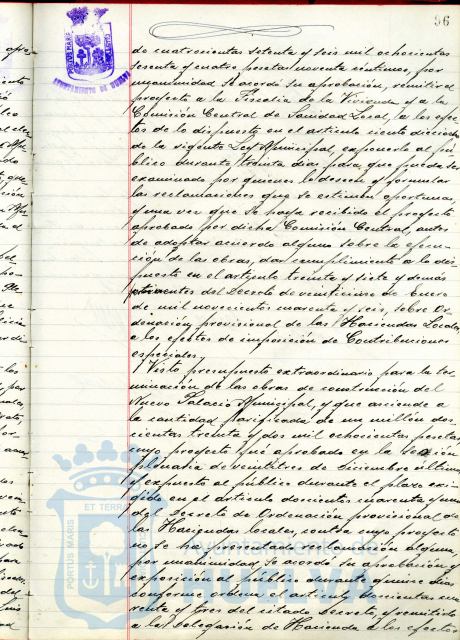 96
de cuatrocientas setenta y seis mil ochocientas
sesenta y cuatro pesetas noventa céntimos, por
unanimidad se acordó su aprobación, remitir el
proyecto a la Fiscalía de la Vivienda y a la
Comisión Central de Sanidad Local, a los efec-
tos de lo dispuesto en el artículo ciento dieciocho
de la vigente Ley Municipal, exponerlo al pú-
blico durante treinta días para que pueda ser
examinado por quienes lo deseen y formular
las reclamaciones que se estimen oportunas,
y una vez que se haya recibido el proyecto
aprobado por dicha Comisión Central, antes
de adoptar acuerdo alguno sobre la ejecu-
ción de las obras, dar cumplimiento a lo dis-
puesto en el artículo treinta y siete y demás
pertinentes del Decreto de veinticinco de Enero
de mil novecientos cuarenta y seis, sobre Or-
denación provisional de las Haciendas Locales,
a los efectos de imposición de Contribuciones
especiales.
Visto presupuesto extraordinario para la ter-
minación de las obras de construcción del
Nuevo Palacio Municipal, y que asciende a
la cantidad de un millón dos-
cientas treinta y dos mil ochocientas pesetas
cuyo proyecto fué aprobado en la sesión
plenaria de veintitres de Diciembre último
y expuesto al público durante el plazo exi-
gido en el artículo doscientos cuarenta y uno
del Decreto de Ordenación provisional de
las Haciendas Locales, contra cuyo proyecto
no se reclamación alguna,
por unanimidad se acordó su aprobación y
exposición al público durante quince días
conforme ordena el artículo doscientos cua-
renta y tres del citado Decreto, y remitirlo
a la Delegación de Hacienda a los efectos
AYUNTAMIENTO DE HUELVA
PORTUS MARIS
ET TERRA
Ayuntamiento de
HUELVA